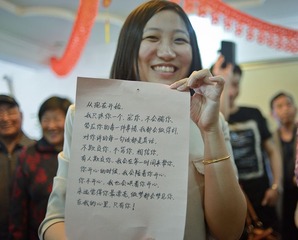 从现在开始，
我只疼你一个，宠你，不会骗你，
答应你的每一件事情，我都会做得到
对你讲的每一句话都是真话，
不欺负你，不骂你，相信你，
有人欺负你，我会在第一时间来帮你，
你开心的时候，我会陪着你开心，
你不开心，我也会哄着你开心，
永远觉得你最漂亮，做梦都会梦见你，
在我的心里，只有你！